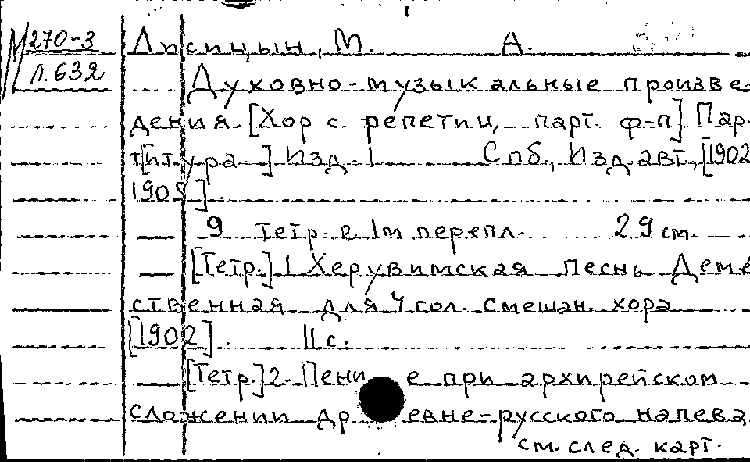 М 270-3 Лисицын, М. А.
Л.632 Духовно-музыкальные произве-
дения [Хор с репетиц. парт. ф-п] Пар-
т[итура] Изд. 1 Спб., Изд. авт., [1902
190 ]
9 тетр. в 1 м. перепл. 29 см.
[Тетр.] 1 Херувимская песнь Деме-
ственная для 4 гол. смешан. хора
[1902]. 11 с.
[Тетр.] 2 Пение при архирейском
сложении древне-русского напева
см. след. карт.